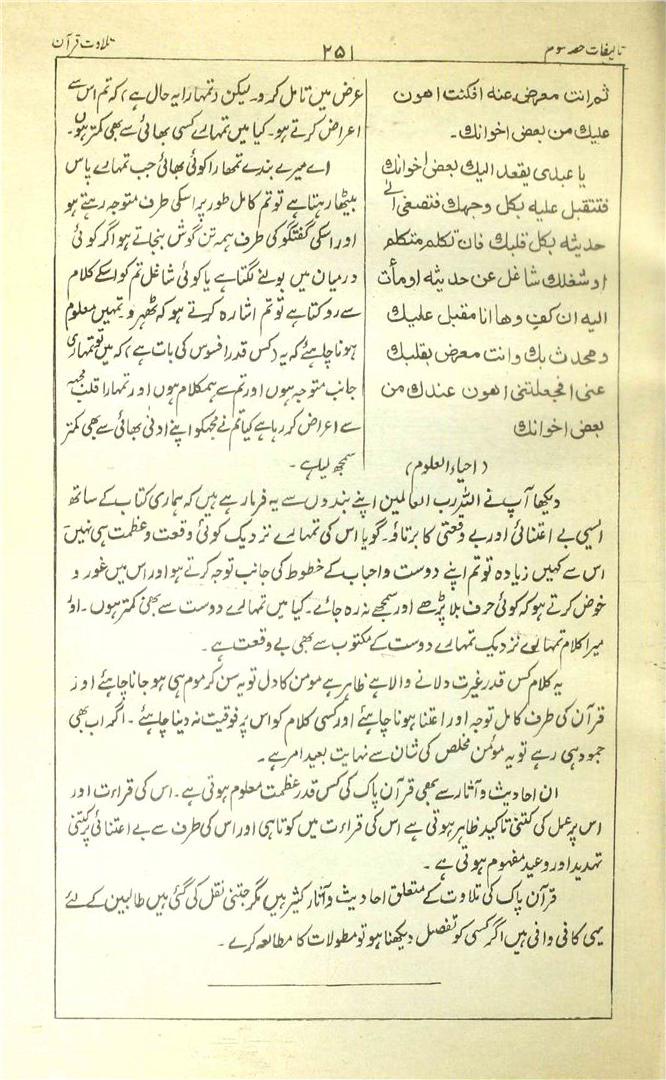 تالیفات حصہ سوم
۲۵۱
تلاوت قرآن
ثم انت معرض عنه افكنت اهون
عليك من بعض اخوانك۔
يا عبدى يقعد اليك بعض اخوانك
فتقبل عليه بكل وجهك فتصغى الى
حديثه بكل قلبك فان تكلم متكلم
او شغلك شاغل عن حديثه اومأت
اليه ان كف وها انا مقبل عليك
ومحدث بك وانت معرض بقلبك
عنى افجعلتنى اهون عندك من
بعض اخوانك
(احیاء العلوم)
عرض میں تامل کرو۔ لیکن تمہارا یہ حال ہے، کہ تم اس سے
اعراض کرتے ہو۔ کیا میں تمہارے کسی بھائی سے بھی کمتر ہوں۔
اے میرے بندے تمھارا کوئی بھائی جب تمہارے پاس
بیٹھا رہتا ہے تو تم کامل طور پر اسکی طرف متوجہ رہتے ہو
اور اسکی گفتگو کی طرف ہمہ تن گوش بنجاتے ہو اگر کوئی
درمیان میں بولنے لگتا ہے یا کوئی شاغل تم کو اسکے کلام
سے روکتا ہے تو تم اشارہ کرتے ہو کہ ٹھہرو۔ تمہیں معلوم
ہونا چاہئے کہ یہ کس قدر افسوس کی بات ہے، کہ میں تو تمہاری
جانب متوجہ ہوں اور تم سے ہمکلام ہوں اور تمہارا قلب مجھ
سے اعراض کر رہا ہے کیا تم نے مجھکو اپنے ادنیٰ بھائی سے بھی کمتر
سمجھ لیا ہے۔
دیکھا آپ نے اللہ رب العالمین اپنے بندوں سے یہ فرما رہے ہیں کہ ہماری کتاب کے ساتھ
ایسی بے اعتنائی اور بے وقعتی کا برتاؤ۔ گویا اس کی تمہارے نزدیک کوئی وقعت و عظمت ہی نہیں
اس سے کہیں زیادہ تو تم اپنے دوست و احباب کے خطوط کی جانب توجہ کرتے ہو اور اس میں غور و
خوض کرتے ہو کہ کوئی حرف بلا پڑھے اور سمجھے نہ رہ جائے۔ کیا میں تمہارے دوست سے بھی کمتر ہوں۔ اور
میرا کلام تمہارے نزدیک تمہارے دوست کے مکتوب سے بھی بے وقعت ہے۔
یہ کلام کس قدر غیرت دلانے والا ہے ظاہر ہے مومن کا دل تو یہ سن کر موم ہی ہو جانا چاہئے اور
قرآن کی طرف کامل توجہ اور اعتنا ہونا چاہئے اور کسی کلام کو اس پر فوقیت نہ دینا چاہئے۔ اگر اب بھی
جمود ہی رہے تو یہ مومن مخلص کی شان سے نہایت بعید امر ہے۔
ان احادیث و آثار سے بھی قرآن پاک کی کس قدر عظمت معلوم ہوتی ہے۔ اس کی قراءت اور
اس پر عمل کی کتنی تاکید ظاہر ہوتی ہے اس کی قراءت میں کوتاہی اور اس کی طرف سے بے اعتنائی پر کتنی
تہدید اور وعید مفہوم ہوتی ہے۔
قرآن پاک کی تلاوت کے متعلق احادیث و آثار کثیر ہیں مگر جتنی نقل کی گئی ہیں طالبین کے لئے
یہی کافی وافی ہیں اگر کسی کو تفصل دیکھنا ہو تو مطولات کا مطالعہ کرے۔